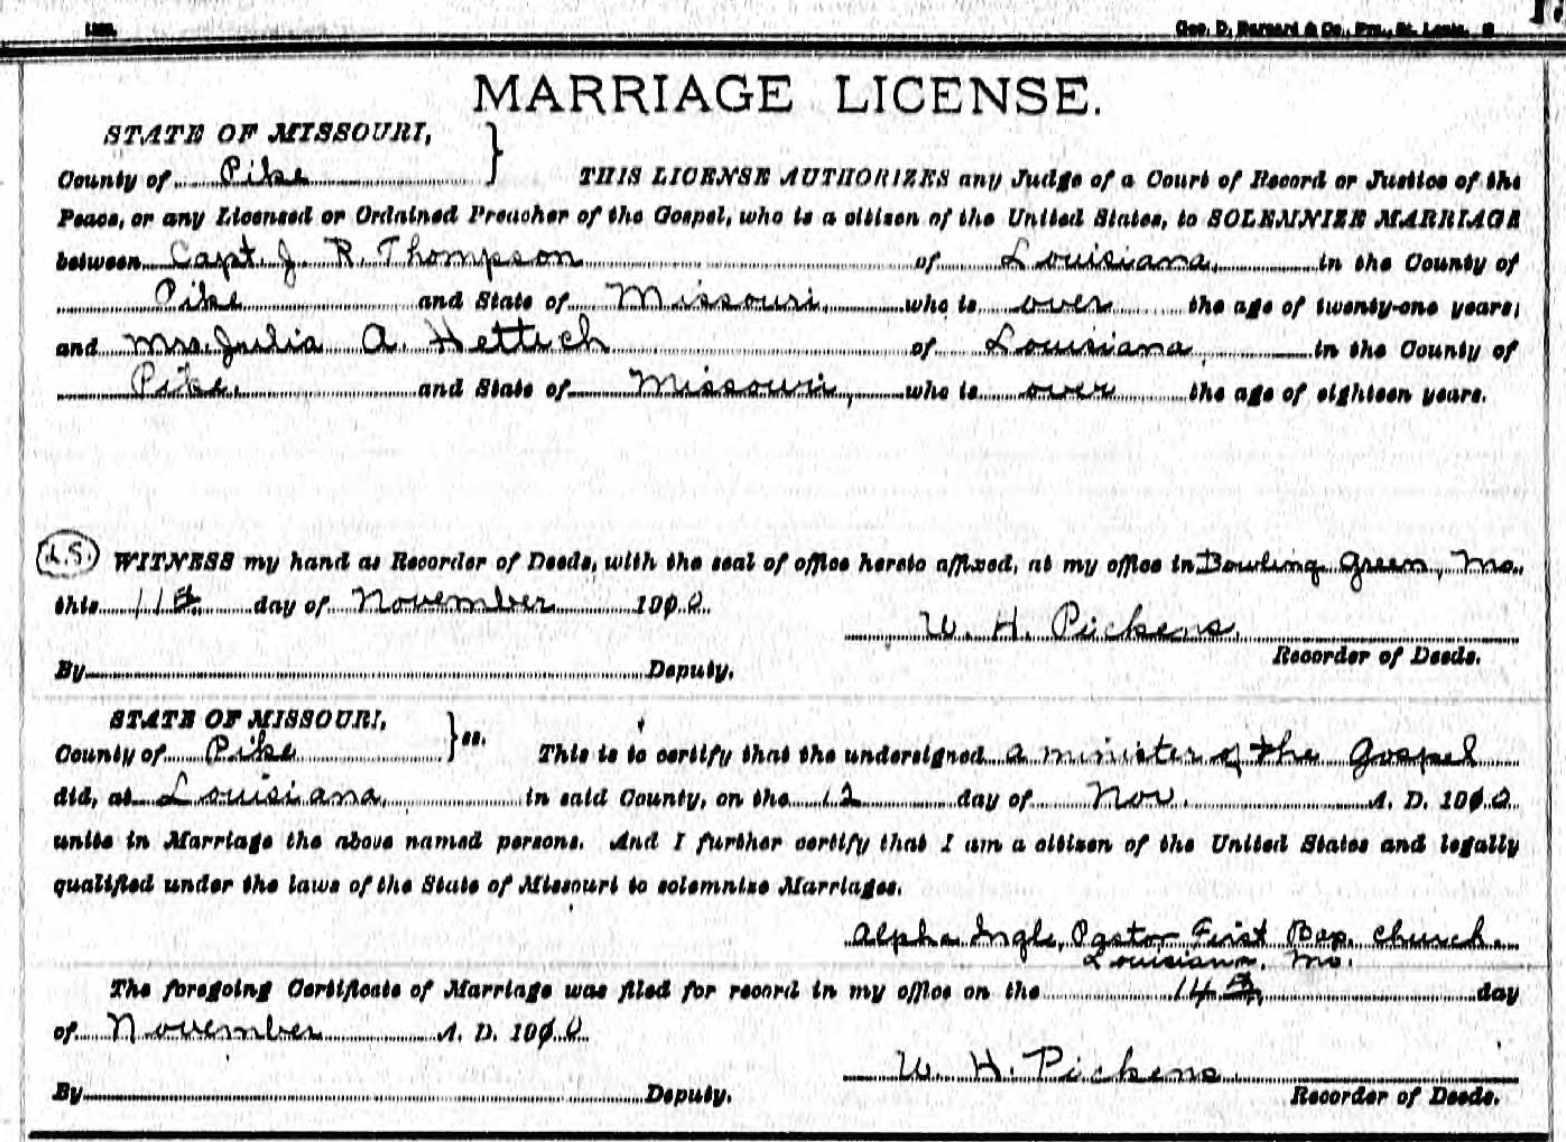 Geo. D. Barnard & Co., Prs., St. Louis.
MARRIAGE LICENSE.
STATE OF MISSOURI,
County of Pike } THIS LICENSE AUTHORIZES any Judge of a Court of Record or Justice of the
Peace, or any Licensed or Ordained Preacher of the Gospel, who is a citizen of the United States, to SOLEMNIZE MARRIAGE
between Capt. J. R. Thompson of Louisiana, in the County of
Pike and State of Missouri, who is over the age of twenty-one years;
and Mrs. Julia A. Hettich of Louisiana, in the County of
Pike, and State of Missouri, who is over the age of eighteen years.
(L.S.) WITNESS my hand as Recorder of Deeds, with the seal of office hereto affixed, at my office in Bowling Green, Mo.,
this 11th day of November 1900.
W. H. Pickens,
Recorder of Deeds.
By Deputy.
STATE OF MISSOURI,
County of Pike } ss. This is to certify that the undersigned a minister of the Gospel
did, at Louisiana, in said County, on the 12 day of Nov. A. D. 1900
unite in Marriage the above named persons. And I further certify that I am a citizen of the United States and legally
qualified under the laws of the State of Missouri to solemnize Marriages.
Alpha Ingle, Pastor First Bap. Church.
Louisiana, Mo.
The foregoing Certificate of Marriage was filed for record in my office on the 14th, day
of November A. D. 1900
W. H. Pickens
By Deputy. Recorder of Deeds.